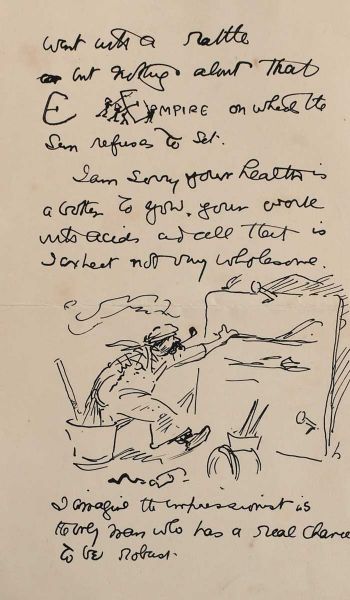 went with a rattle
but nothing about that
E EMPIRE on which the
Sun refuses to set.
I am sorry your health is
a bother to you. your work
with acids and all that is
I expect not very wholesome.
I imagine the impressionist is
the only man who has a real chance
to be robust.